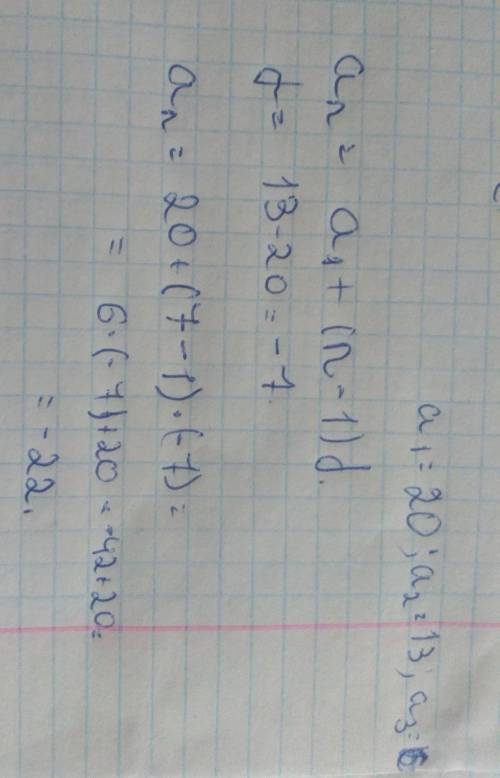 a₁ = 20; a₂ = 13; a₃ = 6
aₙ = a₁ + (n - 1)d.
d = 13 - 20 = -7.
aₙ = 20 + (7 - 1)·(-7) =
= 6·(-7) + 20 = -42 + 20 =
= -22.